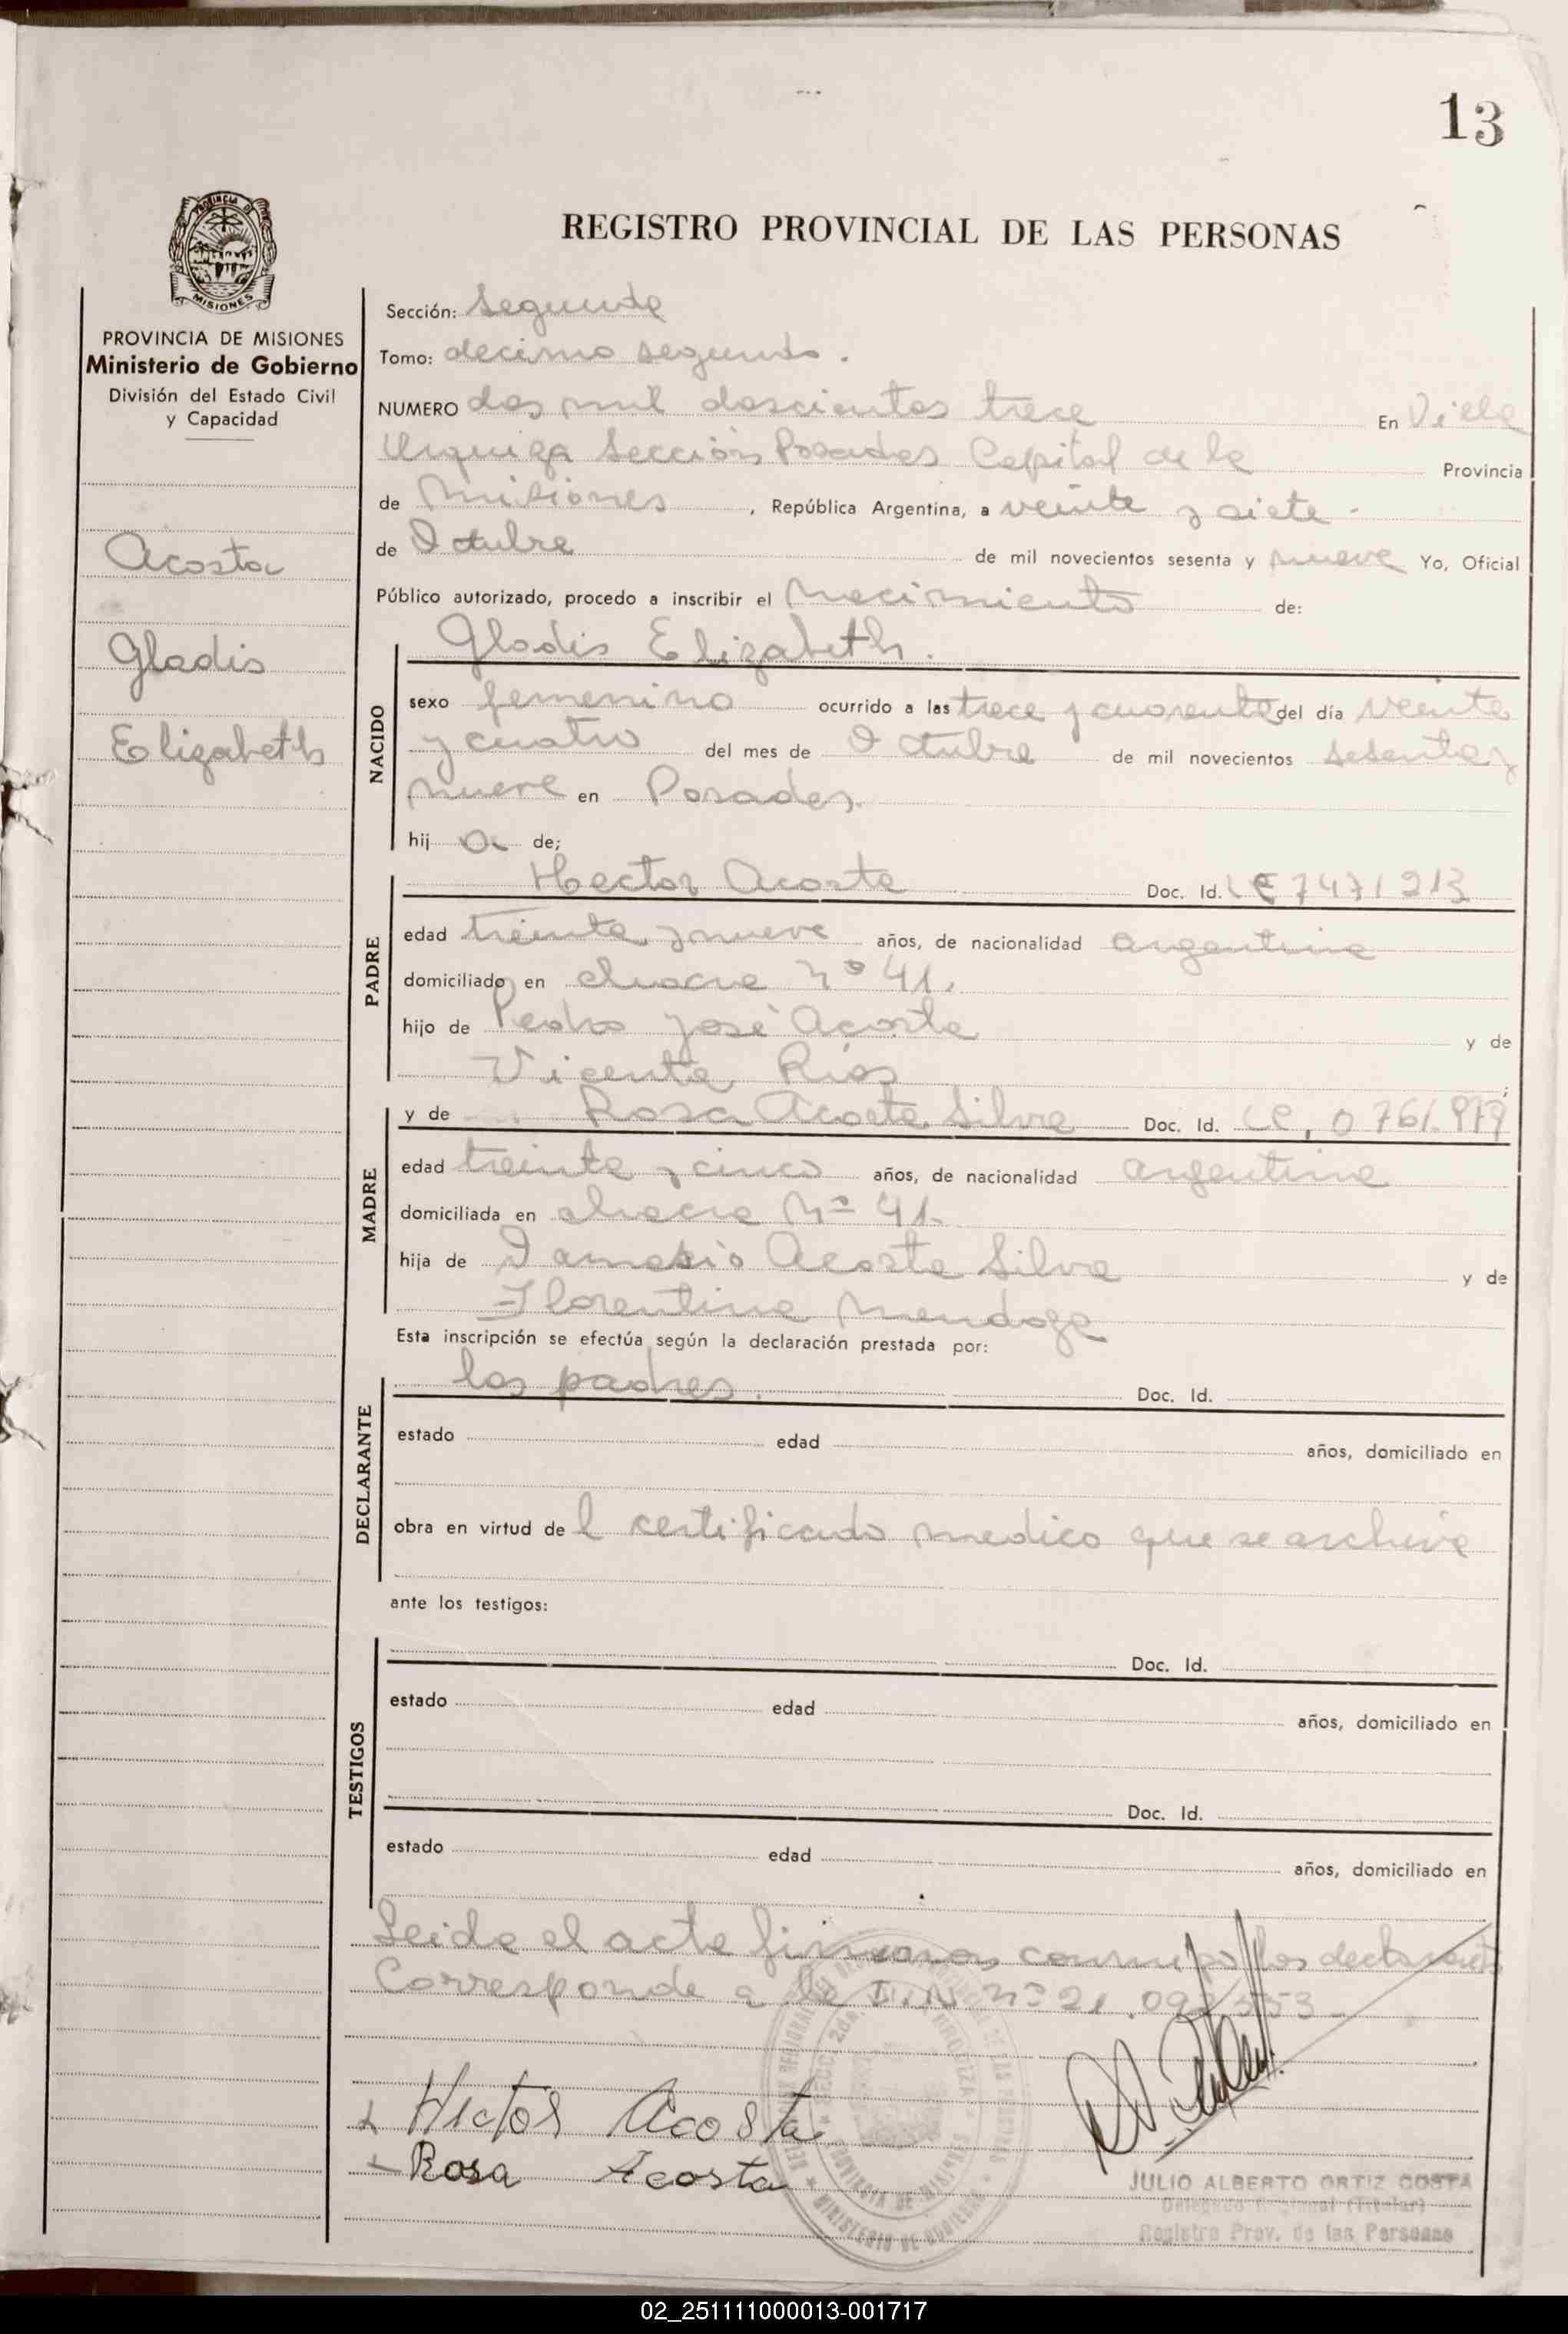 13
PROVINCIA DE
MISIONES
REGISTRO PROVINCIAL DE LAS PERSONAS
PROVINCIA DE MISIONES
Ministerio de Gobierno
División del Estado Civil
y Capacidad
Acosta
Gladis
Elizabeth
Sección: Segunda
Tomo: decimo segundo.
NUMERO dos mil doscientos trece En Villa
Urquiza Sección Posadas Capital de la Provincia
de Misiones, República Argentina, a veinte y siete
de Octubre de mil novecientos sesenta y nueve Yo, Oficial
Público autorizado, procedo a inscribir el Nacimiento de:
NACIDO
Gladis Elizabeth.
sexo femenino ocurrido a las trece y cuarenta del día veinte
y cuatro del mes de Octubre de mil novecientos sesenta y
nueve en Posadas.
hij a de;
PADRE
Hector Acosta Doc. Id. LE 7471213
edad treinta y nueve años, de nacionalidad argentina
domiciliado en chacra nº 41.
hijo de Pedro José Acosta y de
Vicenta Rios
MADRE
y de Rosa Acosta Silva Doc. Id. LC. 0761.979
edad treinta y cinco años, de nacionalidad argentina
domiciliada en chacra Nº 41.
hija de Damasio Acosta Silva y de
Florentina Mendoza
Esta inscripción se efectúa según la declaración prestada por:
DECLARANTE
los padres. Doc. Id.
estado edad años, domiciliado en
obra en virtud de l certificado medico que se archiva
ante los testigos:
TESTIGOS
Doc. Id.
estado edad años, domiciliado en
Doc. Id.
estado edad años, domiciliado en
Leida el acta firman conmigo los declarantes
Corresponde a la I.N. nº 21.092553
Hector Acosta
Rosa Acosta
JULIO ALBERTO ORTIZ COSTA
Registro Prov. de las Personas
02_251111000013-001717